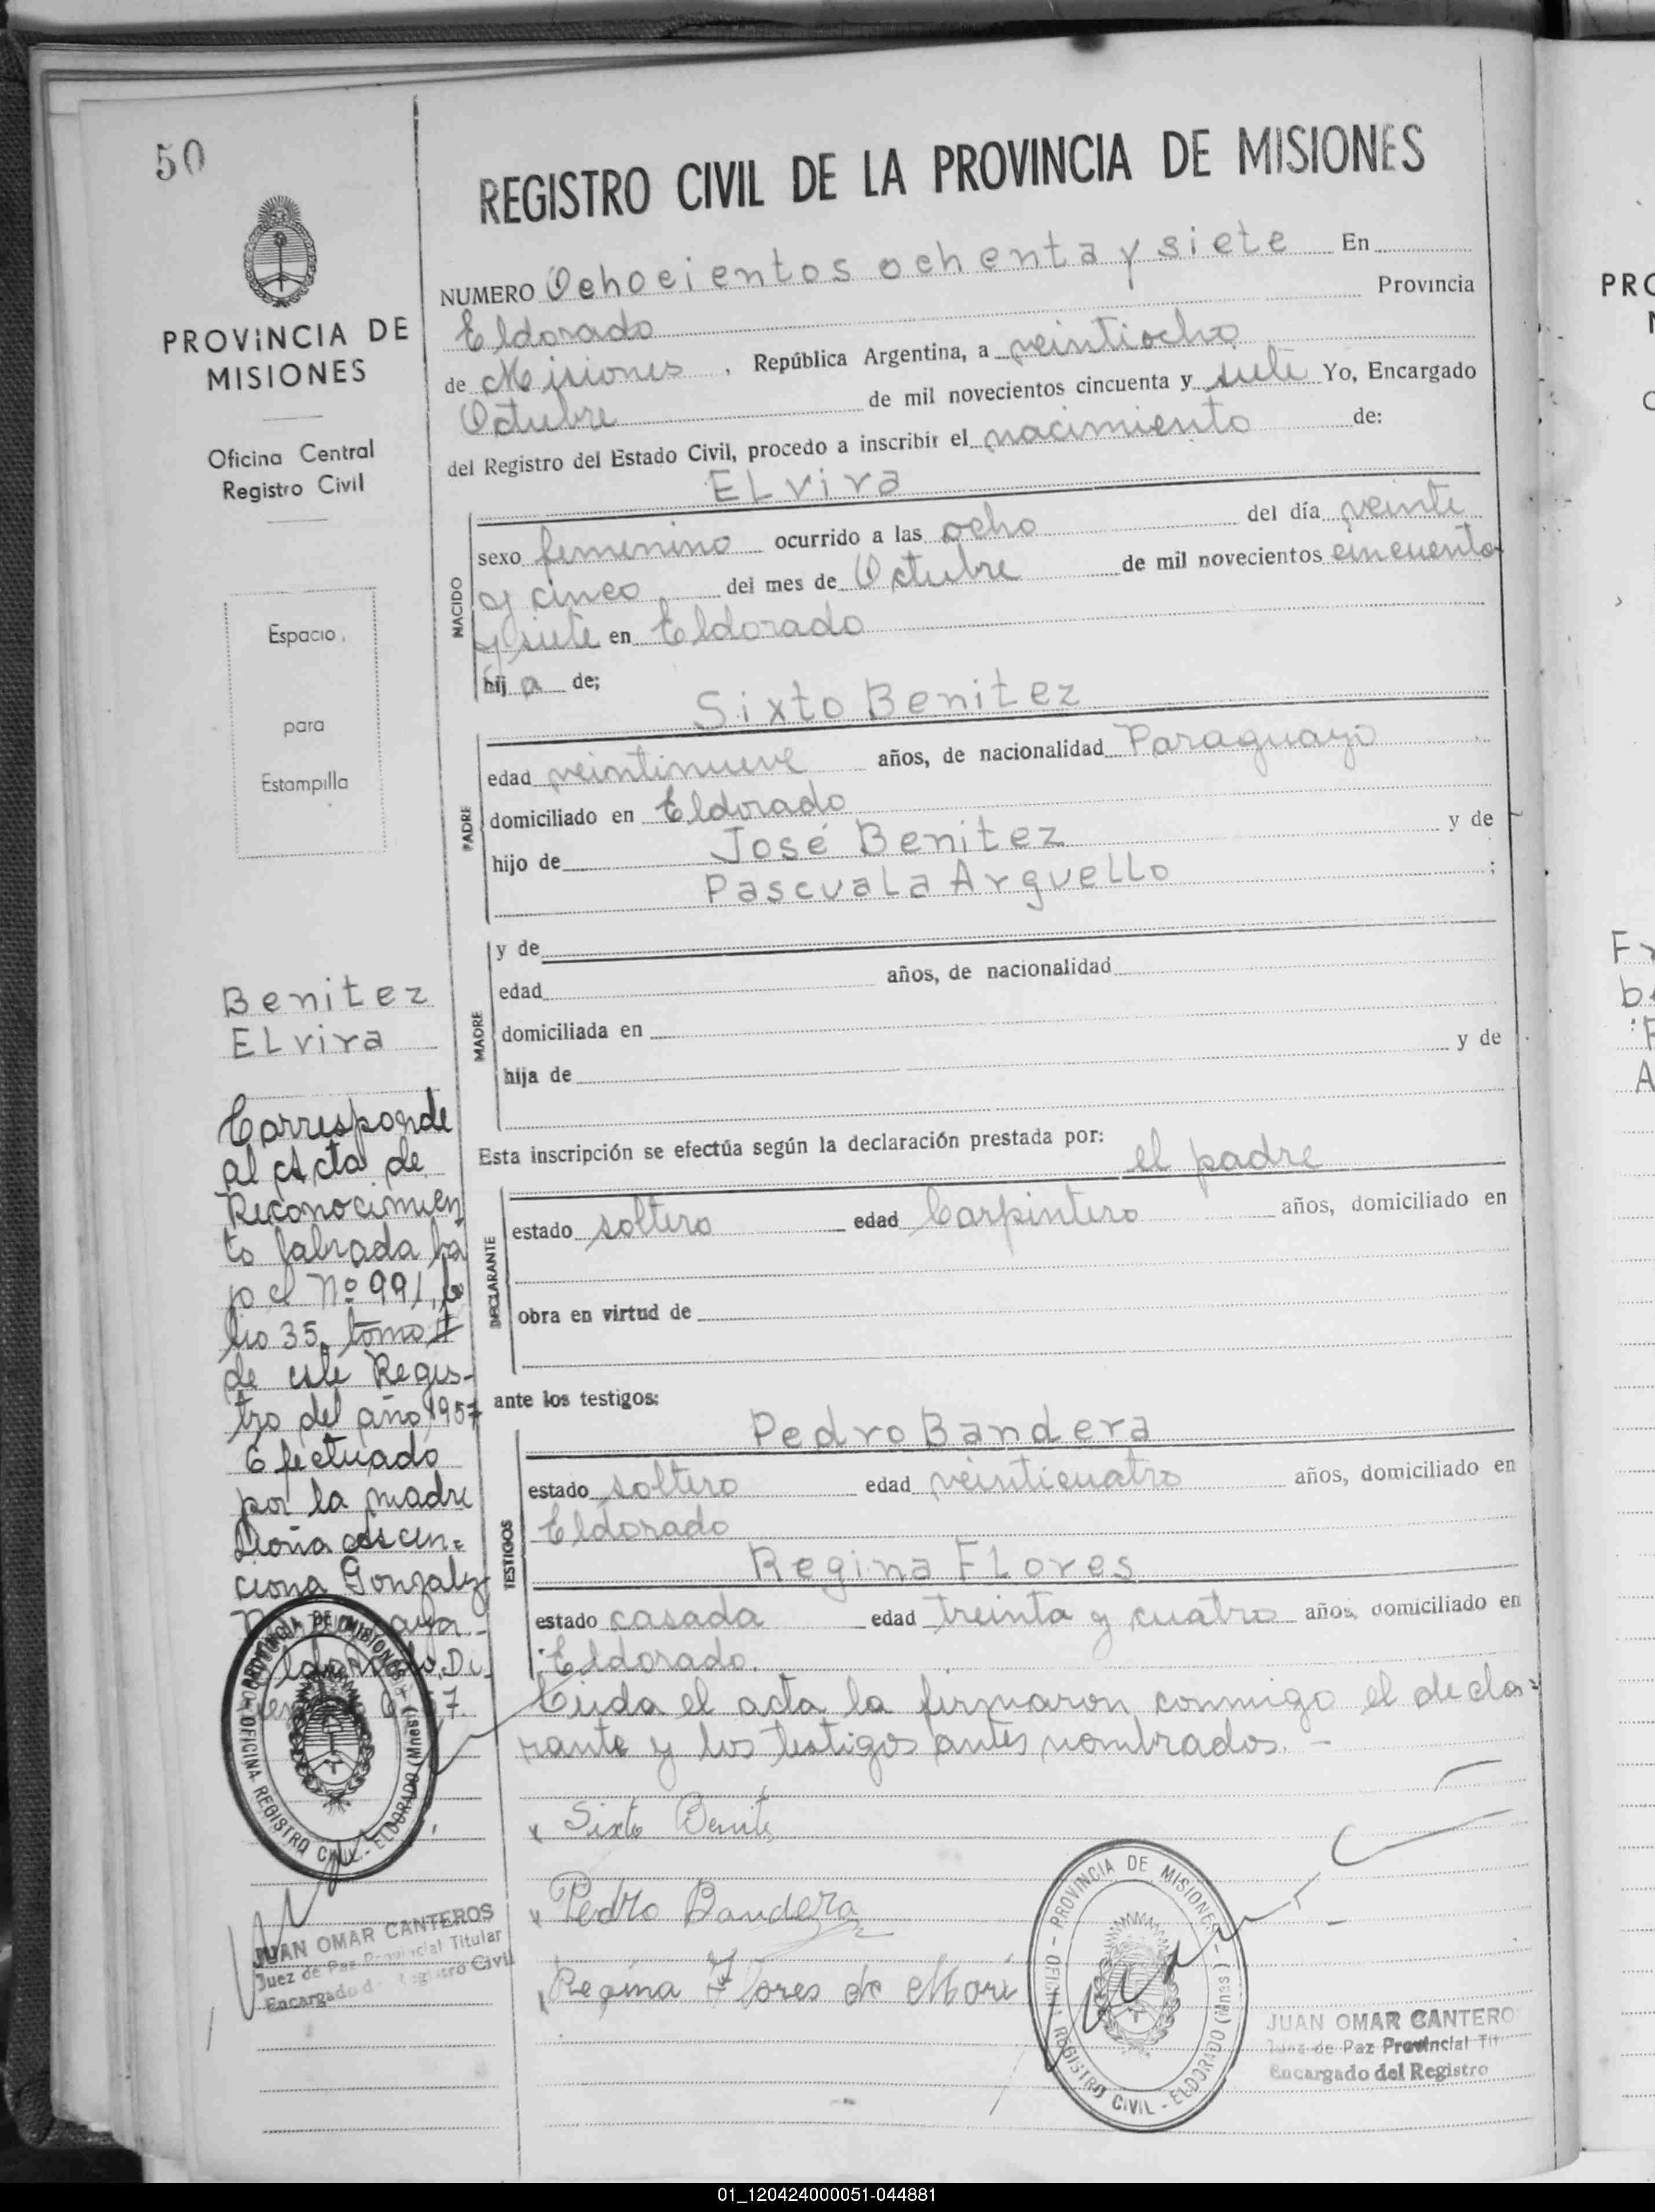 50
PROVINCIA DE
MISIONES
Oficina Central
Registro Civil
Espacio
para
Estampilla
Benitez
Elvira
Corresponde
al Acta de
Reconocimien
to labrada ba
jo el Nº 991, fo
lio 35, tomo II
de este Regis-
tro del año 1957
Efectuado
por la madre
Doña Ascen-
ciona Gonzalez
PROVINCIA DE MISIONES
OFICINA REGISTRO CIVIL - ELDORADO (Mnes)
JUAN OMAR CANTEROS
Juez de Paz Provincial Titular
Encargado del Registro Civil
REGISTRO CIVIL DE LA PROVINCIA DE MISIONES
NUMERO Ochocientos ochenta y siete En
Eldorado Provincia
de Misiones, República Argentina, a veintiocho
Octubre de mil novecientos cincuenta y siete Yo, Encargado
del Registro del Estado Civil, procedo a inscribir el nacimiento de:
Elvira
NACIDO
sexo femenino ocurrido a las ocho del día veinte
y cinco del mes de Octubre de mil novecientos cincuenta
y siete en Eldorado
hija de;
Sixto Benitez
PADRE
edad veintinueve años, de nacionalidad Paraguayo
domiciliado en Eldorado
hijo de José Benitez y de
Pascuala Arguello ;
MADRE
y de
edad años, de nacionalidad
domiciliada en
hija de y de
Esta inscripción se efectúa según la declaración prestada por:
el padre
DECLARANTE
estado soltero edad Carpintero años, domiciliado en
obra en virtud de
ante los testigos:
Pedro Bandera
TESTIGOS
estado soltero edad veinticuatro años, domiciliado en
Eldorado
Regina Flores
estado casada edad treinta y cuatro años, domiciliado en
Eldorado.
Leida el acta la firmaron conmigo el decla-
rante y los testigos antes nombrados. -
x Sixto Benitez
x Pedro Bandera
x Regina Flores de Mori
PROVINCIA DE MISIONES
OFICINA REGISTRO CIVIL - ELDORADO (Mnes)
JUAN OMAR CANTERO
Juez de Paz Provincial Tit
Encargado del Registro
01_120424000051-044881